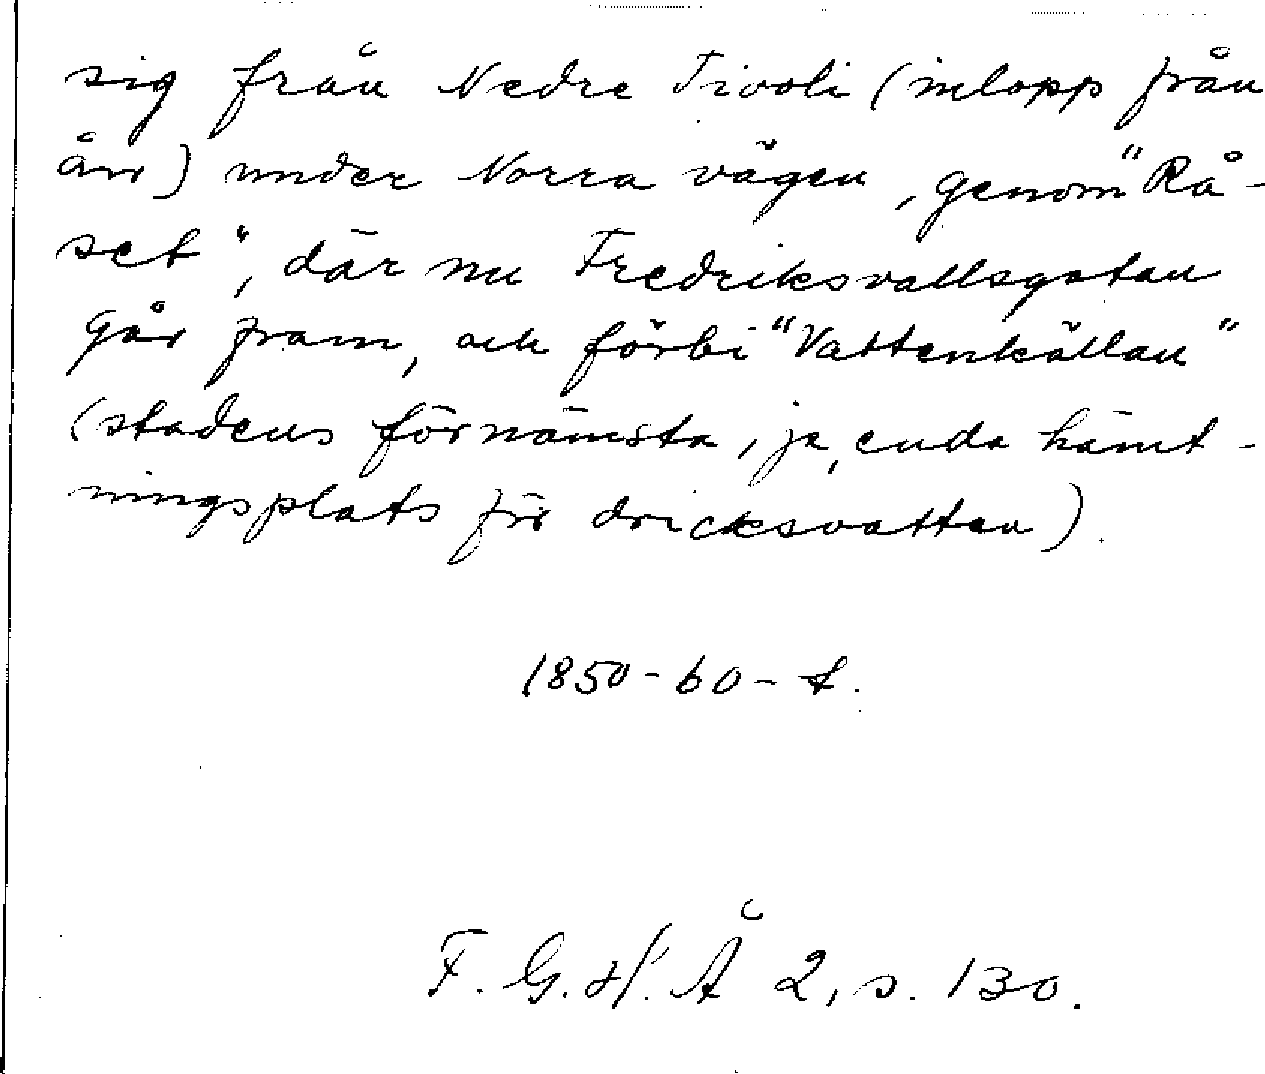 sig från Nedre Tivoli (inlopp från
ån) under Norra vägen, genom "Rå-
set", där nu Fredriksvallsgatan
går fram, och förbi "Vattenkällan"
(stadens förnämsta, ja, enda hämt-
ningsplats för dricksvatten).
1850-60-t.
F. G. H. Å 2, s. 130.